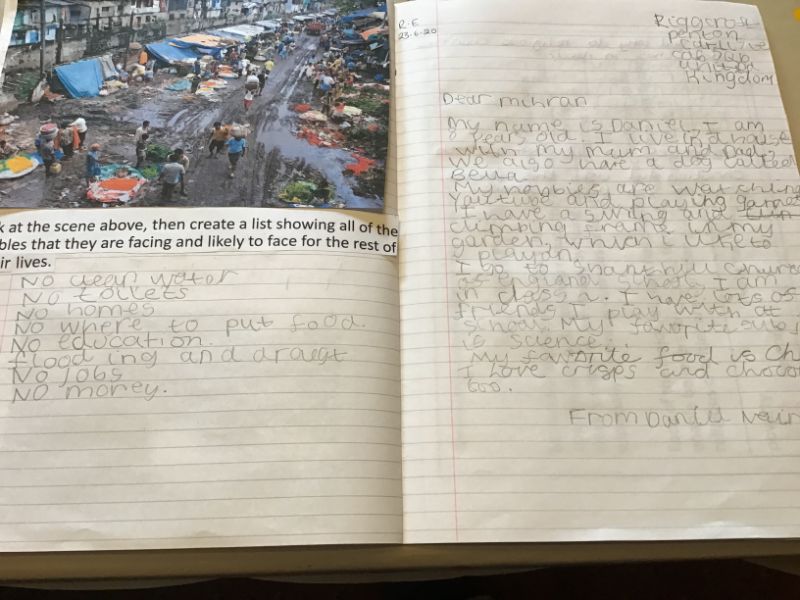 k at the scene above, then create a list showing all of the
bles that they are facing and likely to face for the rest of
ir lives.
No clean water
No toilets
No homes
No where to put food.
No education.
flooding and draegt
No jobs
NO money.
R.E
23.6.20
penton
Kingdom
Dear mihran
My name is Daniel, I am
8 years old. I live in a house
with my mum and Dad.
We also have a dog called
Bella
My hobbies are watching
Youtube and playing games
I have a swing and
climbing frame in my
garden, which i like to
playon.
I go to church
of england school. I am
in class 2. I have lots of
friends I play with at
school. My favorite subj
is science.
My favorite food is Ch
I Love crisps and choco
too.
From Daniel